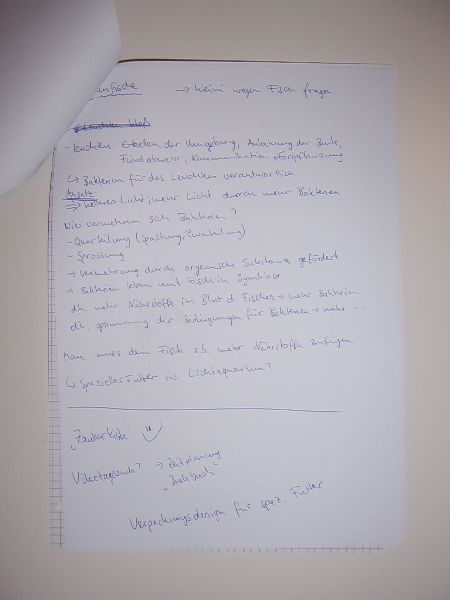 enfische → heini wegen Fisch fragen
- leuchten: Erhellen der Umgebung, Anlockung der Beute,
Feindabwehr, Kommunikation, Fortpflanzung
↳ Bakterien für das Leuchten verantwortlich
Ansatz
⇒ helleres Licht; mehr Licht durch mehr Bakterien
Wie vermehren sich Bakterien?
- Querteilung (Spaltung, Zweiteilung)
- Sprossung
→ Vermehrung durch organische Substanz gefördert
→ Bakterien leben mit Fisch in Symbiose
dh mehr Nährstoffe im Blut d. Fisches → mehr Bakterien
dh. der Bedingungen für Bakterien → mehr ...
Man muss dem Fisch z.B. mehr Nährstoffe zufügen.
↳ Spezielles Futter ins Lichtaquarium?
"Zauberkiste"
Videotagebuch? → Zeitplanung
"Drehbuch"
Verpackungsdesign für spez. Futter